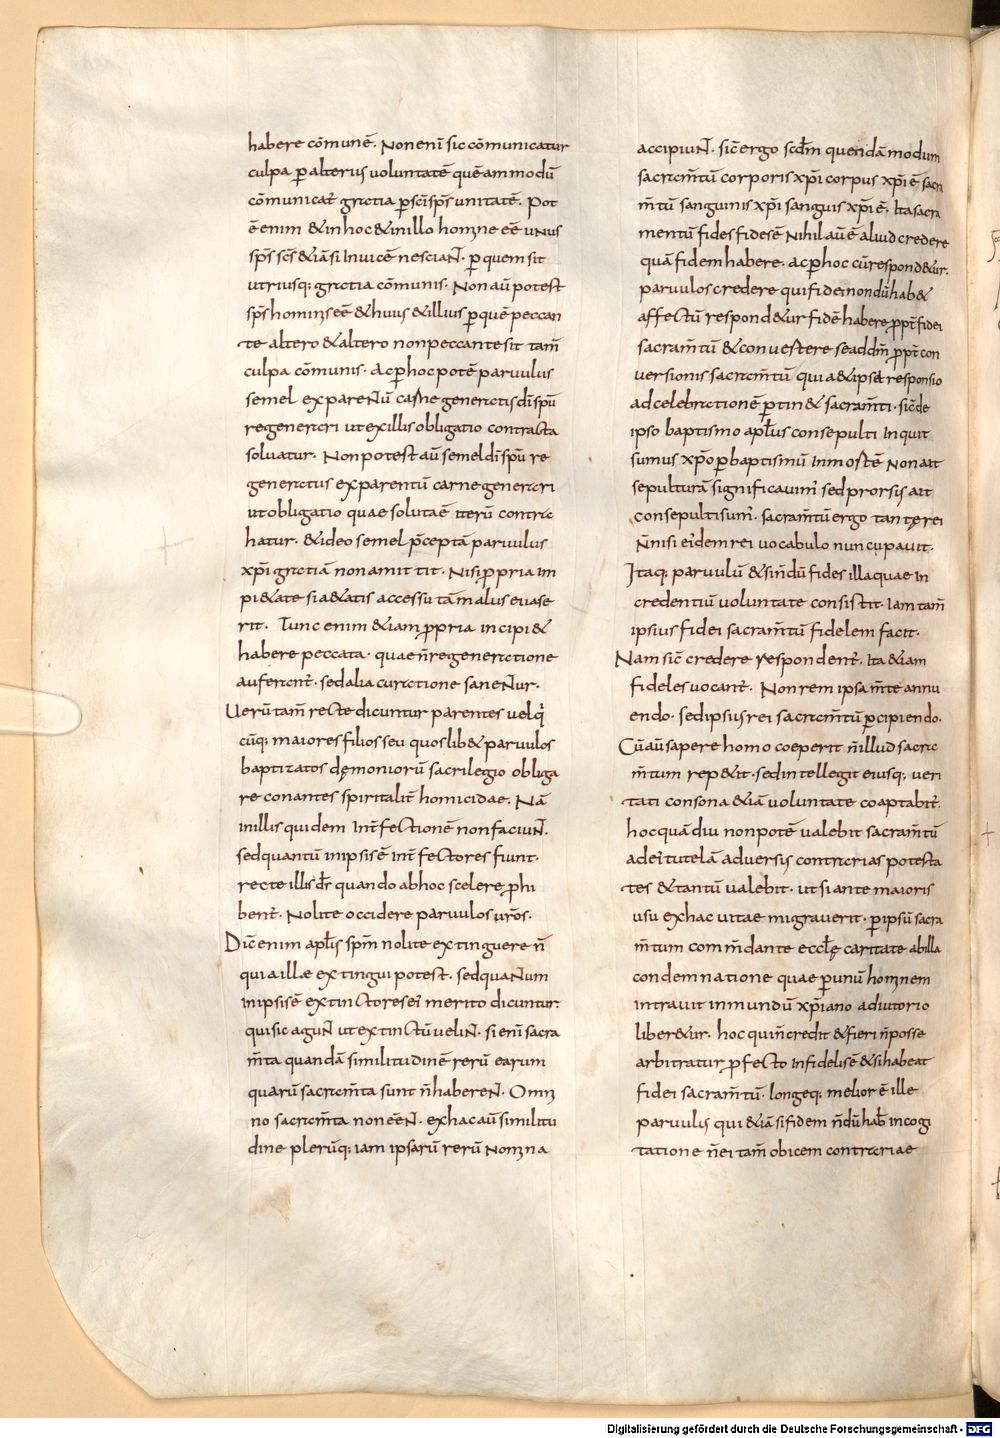 habere cōmunē. Non enī sic cōmunicatur
culpa ꝑ alterius uoluntatē quēammodū
cōmunicat̄ gratia ꝑ sc̄i sp̄s unitatē. Pot
ē enim & in hoc & in illo homine eē unus
sp̄s sc̄s & iā si inuicē nesciaN̄. ꝑ quem sit
utriusq; gratia cōmunis. Non aū potest
sp̄s hominis eē & huius & illius ꝑ quē peccan
te altero & altero non peccante sit tam̄
culpa cōmunis. Ac ꝑ hoc potē paruulus
semel ex pareNtū carne generatus dī sp̄ū
regenerari ut ex illis obligatio contracta
soluatur. Non potest aū semel dī sp̄ū re
generatus ex parentū carne generari
ut obligatio quae soluta ē iterū contra
hatur. & ideo semel p̄ceptā paruulus
xp̄i gratiā non amittit. Nisi ꝓpria im
pi&ate si a&atis accessu tā malus euase
rit. Tunc enim &iam ꝓpria incipi&
habere peccata. quae n̄ regeneratione
auferant̄. sed alia curatione saneNtur.
Uerū tam̄ recte dicuntur parentes uel q̄
cūq; maiores filios seu quoslib& paruulos
baptizatos dęmoniorū sacrilegio obliga
re conantes spiritalit̄ homicidae. Nā
in illis quidem int̄fectionē non faciuN̄.
sed quantū in ipsis ē int̄fectores fiunt.
recte illis dr̄ quando ab hoc scelere ꝓhi
bent̄. Nolite occidere paruulos ur̄os.
Dic̄ enim apl̄s sp̄m nolite extinguere n̄
quia ille extingui potest. sed quaNtum
in ipsis ē extinctores eī merito dicuntur.
qui sic aguN̄ ut extinctū ueliN̄. si enī sacra
m̄ta quandā similitudinē rerū earum
quarū sacram̄ta sunt n̄ habereN̄. Omni
no sacram̄ta non eēN̄. ex hac aū similitu
dine plerūq; iam ipsarū rerū Nomina
accipiuN̄. sic̄ ergo scd̄m quendā modum
sacram̄tū corporis xp̄i corpus xp̄i ē sacra
m̄tū sanguinis xp̄i sanguis xp̄i ē. Ita sacra
mentū fides fides ē Nihil aū ē aliud credere
quā fidem habere. Ac ꝑ hoc cū respond&ur.
paruulos credere qui fidei nondū hab&
affectū respond&ur fidē habere ꝓpt̄ fidei
sacram̄tū & conuertere se ad dm̄ ꝓpt̄ con
uersionis sacram̄tū quia & ipsa responsio
ad celebrationē ꝑtin& sacram̄ti. sic̄ de
ipso baptismo apl̄us consepulti inquit
sumus xp̄o ꝑ baptismū in mortē Non ait
sepulturā significauim̄ sed prorsis ait
consepulti sum̄. sacram̄tū ergo tantę rei
n̄nisi eīdem rei uocabulo nuncupauit.
Itaq; paruulū & si n̄dū fides illa quae in
credentiū uoluntate consistit. Iam tam̄
ipsius fidei sacram̄tū fidelem facit.
Nam sic̄ credere respondent̄. Ita &iam
fideles uocant̄. Non rem ipsa m̄te annu
endo. sed ipsius rei sacram̄tū ꝑcipiendo.
Cū aū sapere homo coeperit n̄ illud sacra
m̄tum rep&it. sed intellegit eiusq; ueri
tati consona &iā uoluntate coaptabit̄.
hoc quā diu non potē ualebit sacram̄tū
ad eī tutelā aduersis contrarias potesta
tes & tantū ualebit. ut si ante maioris
usu ex hac uitae migrauerit. ꝑ ipsū sacra
m̄tum com m̄dante eccl̄ę caritate ab illa
condemnatione quae ꝑ unū hominem
intrauit in mundū xp̄iano adiutorio
liber&ur. hoc qui n̄ credit & fieri n̄ posse
arbitratur ꝓfecto infidelis ē & si habeat
fidei sacram̄tū. longeq; melior ē ille
paruulis qui &iā si fidem n̄dū hab̄ in cogi
tatione n̄ ei tam̄ obicem contrariae
Digitalisierung gefördert durch die Deutsche Forschungsgemeinschaft - DFG